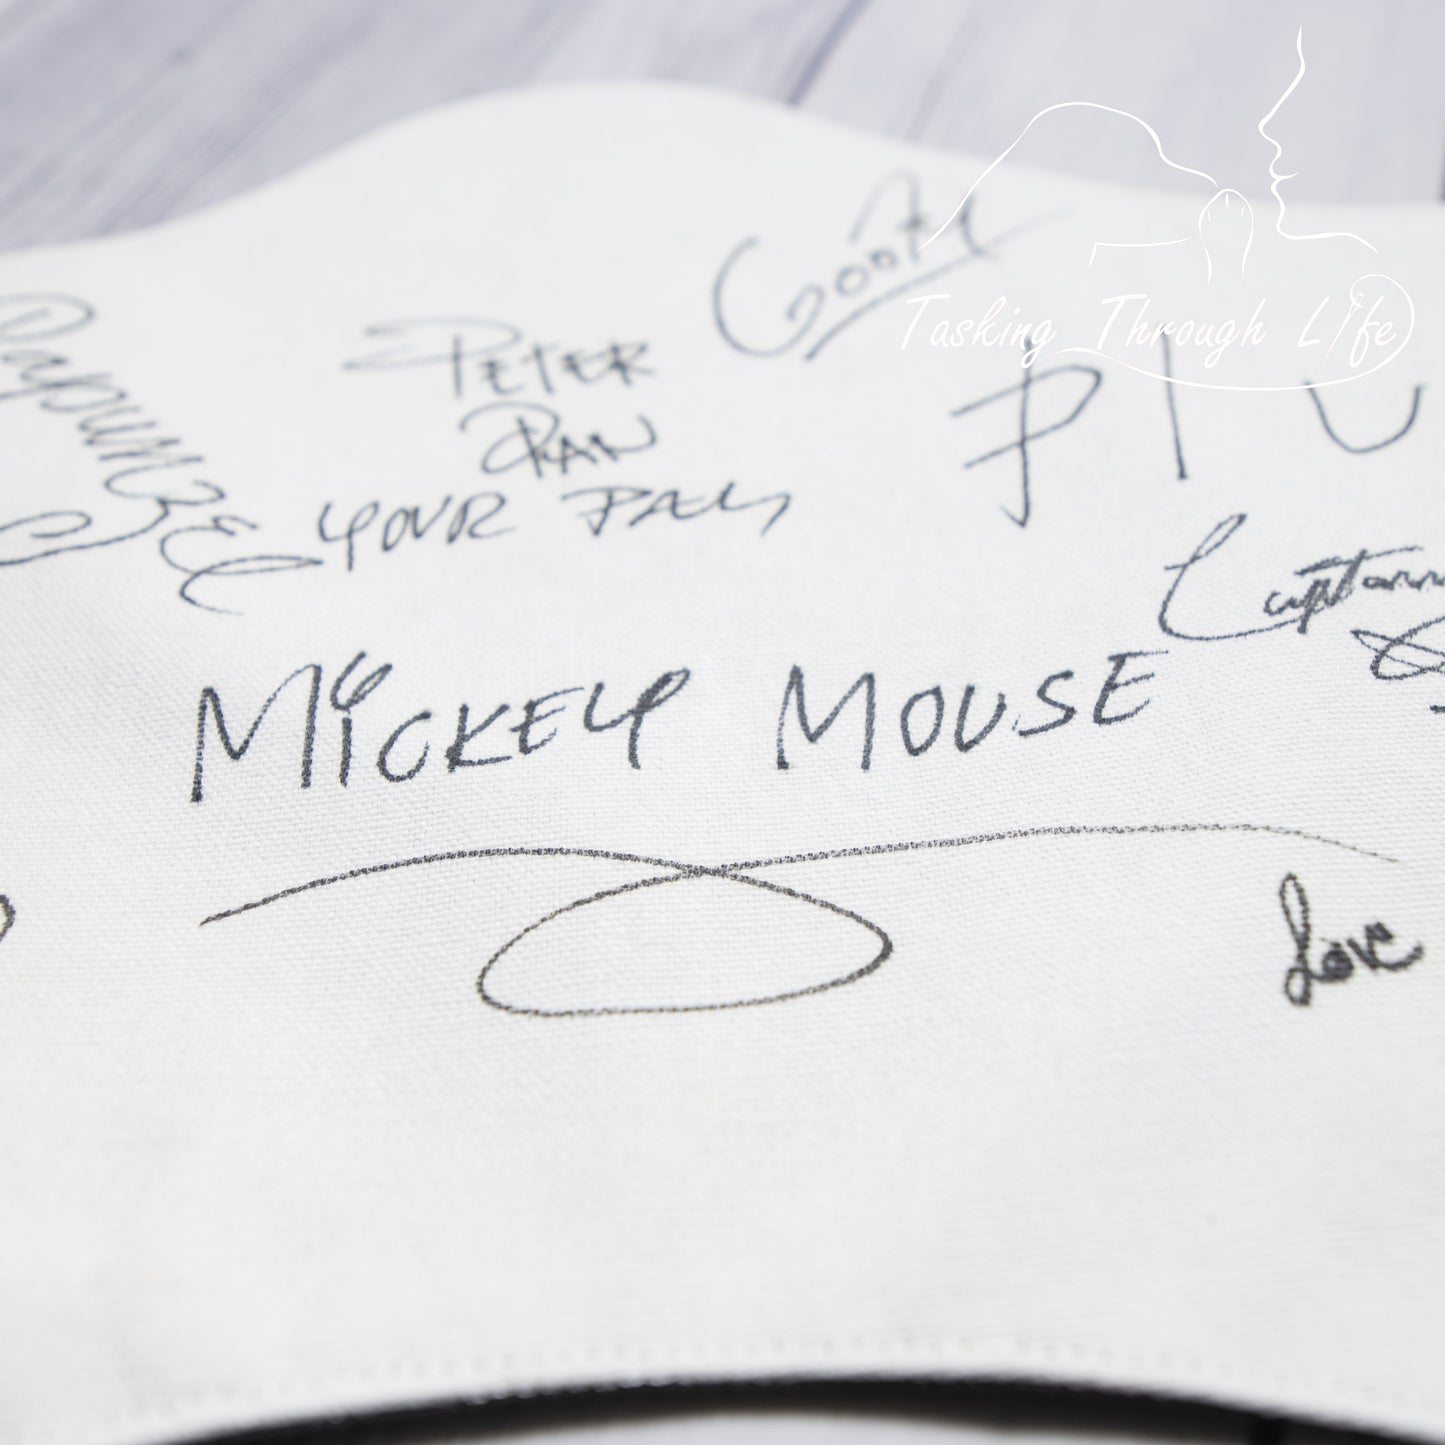 Goofy
Tasking Through Life
Rapunzel
PETER
PAN
YOUR PAL
PLU
Captain
MICKEY MOUSE
Love